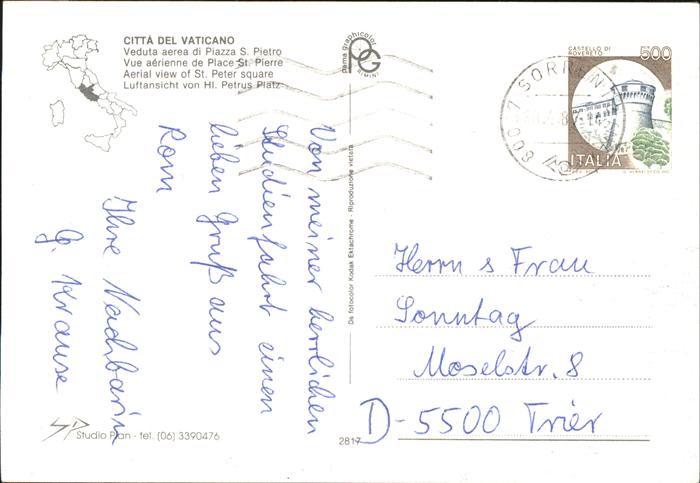 CITTÀ DEL VATICANO
Veduta aerea di Piazza S. Pietro
Vue aérienne de Place St. Pierre
Aerial view of St. Peter square
Luftansicht von Hl. Petrus Platz
Von meiner herrlichen
Studienfahrt einen
lieben Gruß aus
Rom
Ihre Nachbarin
G. Krause
Studio Plan - tel. (06) 3390476
2817
Da fotocolor Kodak Ektachrome - Riproduzione vietata
Dama graphicolor
PG
RIMINI
CASTELLO DI
ROVERETO
500
ITALIA
80067 SORRENTO
Herrn & Frau
Sonntag
Moselstr. 8
D-5500 Trier